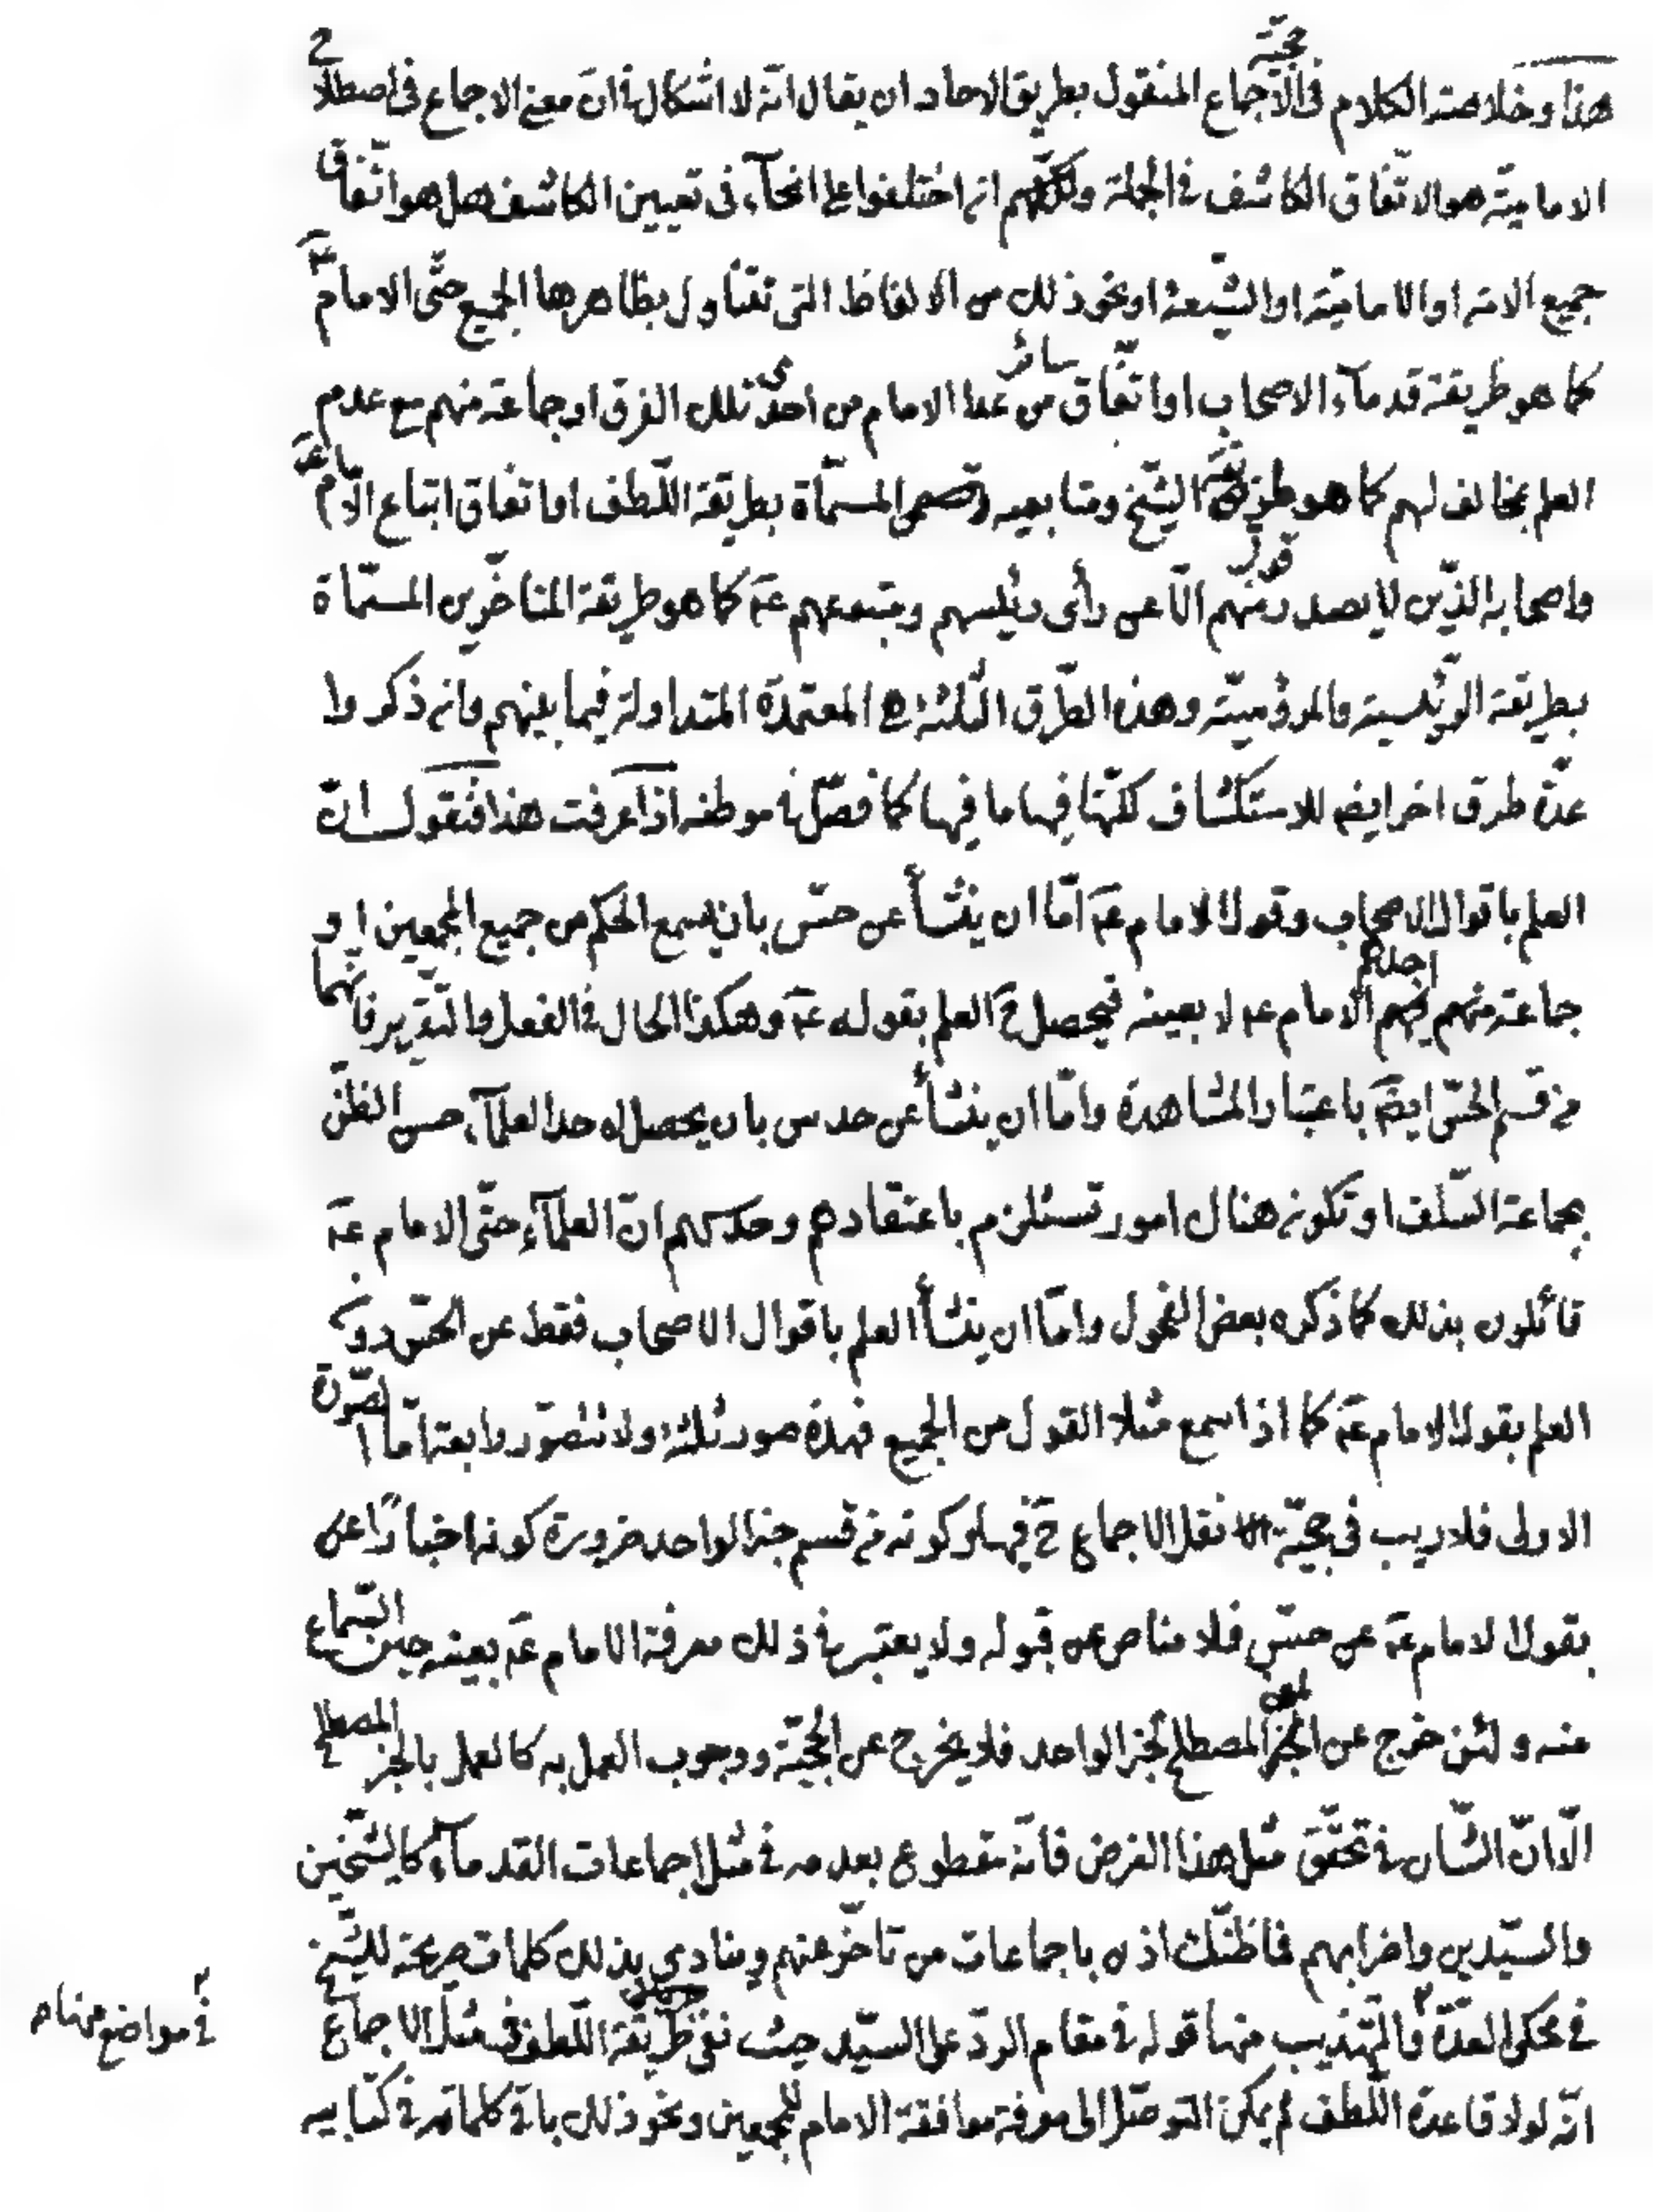 هذا وخلاصة الكلام فى حجيّة الاجماع المنقول بطريق الاحاد ان يقال انّه لا اشكال فى انّ معنى الاجماع فى اصطلاح
الاماميّة هو الاتّفاق الكاشف فى الجملة ولكنّهم انّما اختلفوا على انحآء فى تعيين الكاشف هل هو اتّفاق
جميع الامّة او الاماميّة او الشّيعة او نحو ذلك من الالفاظ التى تتناول بظاهرها الجميع حتّى الامام عم
كما هو طريقة قدمآء الاصحاب او اتّفاق سائر من عدا الامام من احدى تلك الفرق او جماعة منهم مع عدم
العلم بمخالف لهم كما هو طريقة الشّيخ ومتابعيه المسمّاة بطريقة اللّطف او اتفاق اتباع الامام عم
واصحابه الذّين لا يصدر منهم قول الّا عن رأى رئيسهم ومتبوعهم عم كما هو طريقة المتاخّرين المسمّاة
بطريقة الرّئيسية والمرؤسيّة وهذه الطّرق الثّلثة هى المعتمدة المتداولة فيما بينهم وانّ ذكروا
عدّة طرق اخر ايضا للاستكشاف لكنّها فيها ما فيها كما فصّل فى موطنه اذا عرفت هذا فنقول انّ
العلم باقوال الاصحاب وقول الامام عم امّا ان ينشأ عن حسّ بان يسمع الحكم من جميع المجمعين او
جماعة منهم احدهم الامام عم لا بعينه فيحصل ح العلم بقوله عم وهكذا الحال فى الفعل والتّقرير فانّهما
من قسم الحسّ ايضا باعتبار المشاهدة وامّا ان ينشأ عن حدس بان يحصل لاحد العلمآء حسن الظنّ
بجماعة السّلف او تكون هناك امور تستلزم باعتقادهم وحدسهم انّ العلمآء حتّى الامام عم
قائلون بذلك كما ذكره بعض الفحول وامّا ان ينشأ العلم باقوال الاصحاب فقط عن الحسّ دون
العلم بقول الامام عم كما اذا سمع مثلا القول من الجميع فهذه صور ثلثة ولا تتصوّر رابعة امّا الصّورة
الاولى فلا ريب فى حجيّة نقل الاجماع ح فيها وكونه من قسم خبر الواحد ضرورة كونه اخبارًا عن
بقول الامام عم عن حسّ فلا مناص عن قبوله ولا يعتبر فى ذلك معرفة الامام عم بعينه حين السّماع
منه ولئن خرج عن الخبر المصطلح لخبر الواحد فلا يخرج عن الحجيّة ووجوب العمل به كالعمل بالخبر المصطلح
الّا انّ الشّان فى تحقّق مثل هذا الفرض فانّه مقطوع بعدمه فى مثل اجماعات القدمآء كالشّيخين
والسّيّدين واضرابهم فما ظنّك اذن باجماعات من تاخّر عنهم وينادى بذلك كلمات صريحة للشّيخ
فى محكى العدّة والتّهذيب منها قوله فى مقام الردّ على السّيّد حيث نفى طريقة اللّطف فى مثل الاجماع
فى مواضع منها
انّه لولا قاعدة اللّطف لم يمكن التوصّل الى معرفة موافقة الامام للمجمعين ونحو ذلك باقى كلماته فى كتابيه